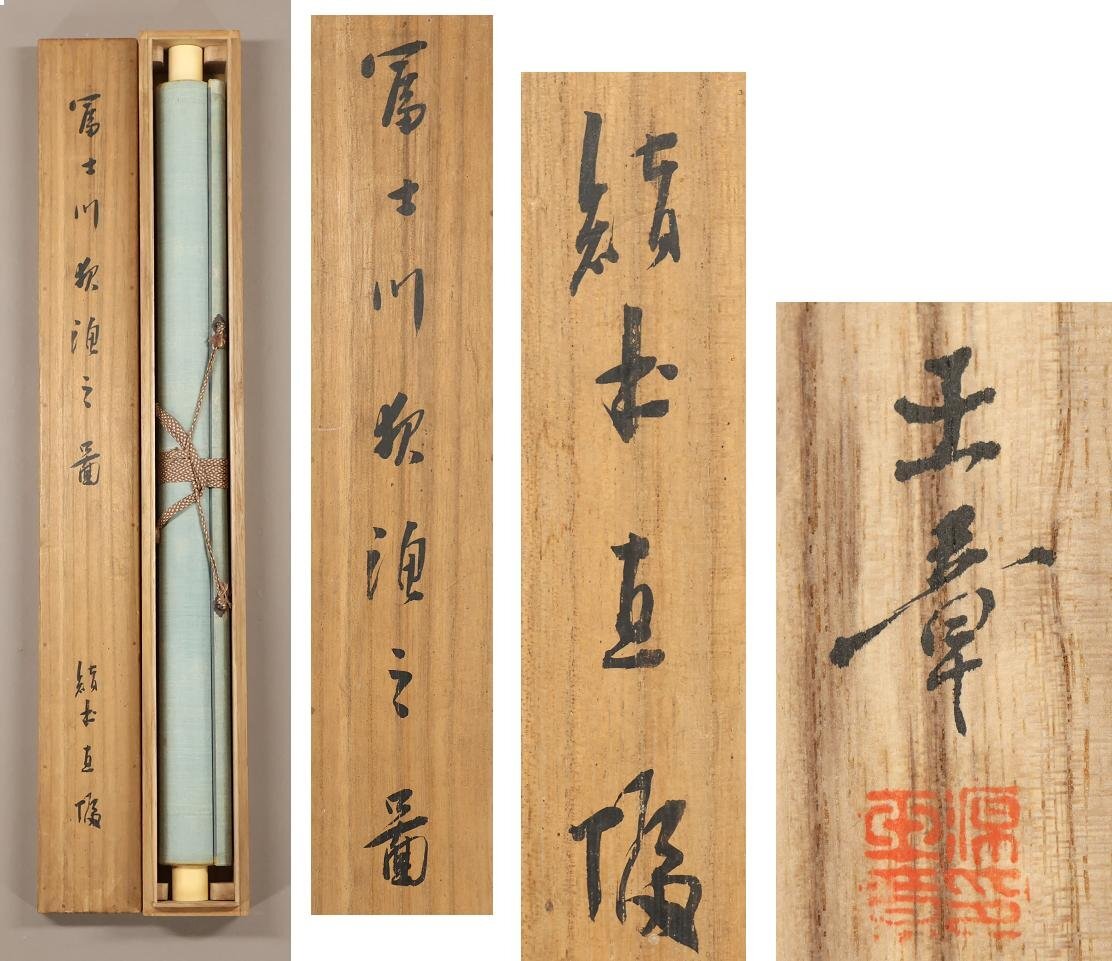 富士川夜漁之圖
絹本直幅
富士川夜漁之圖
絹本直幅
玉章